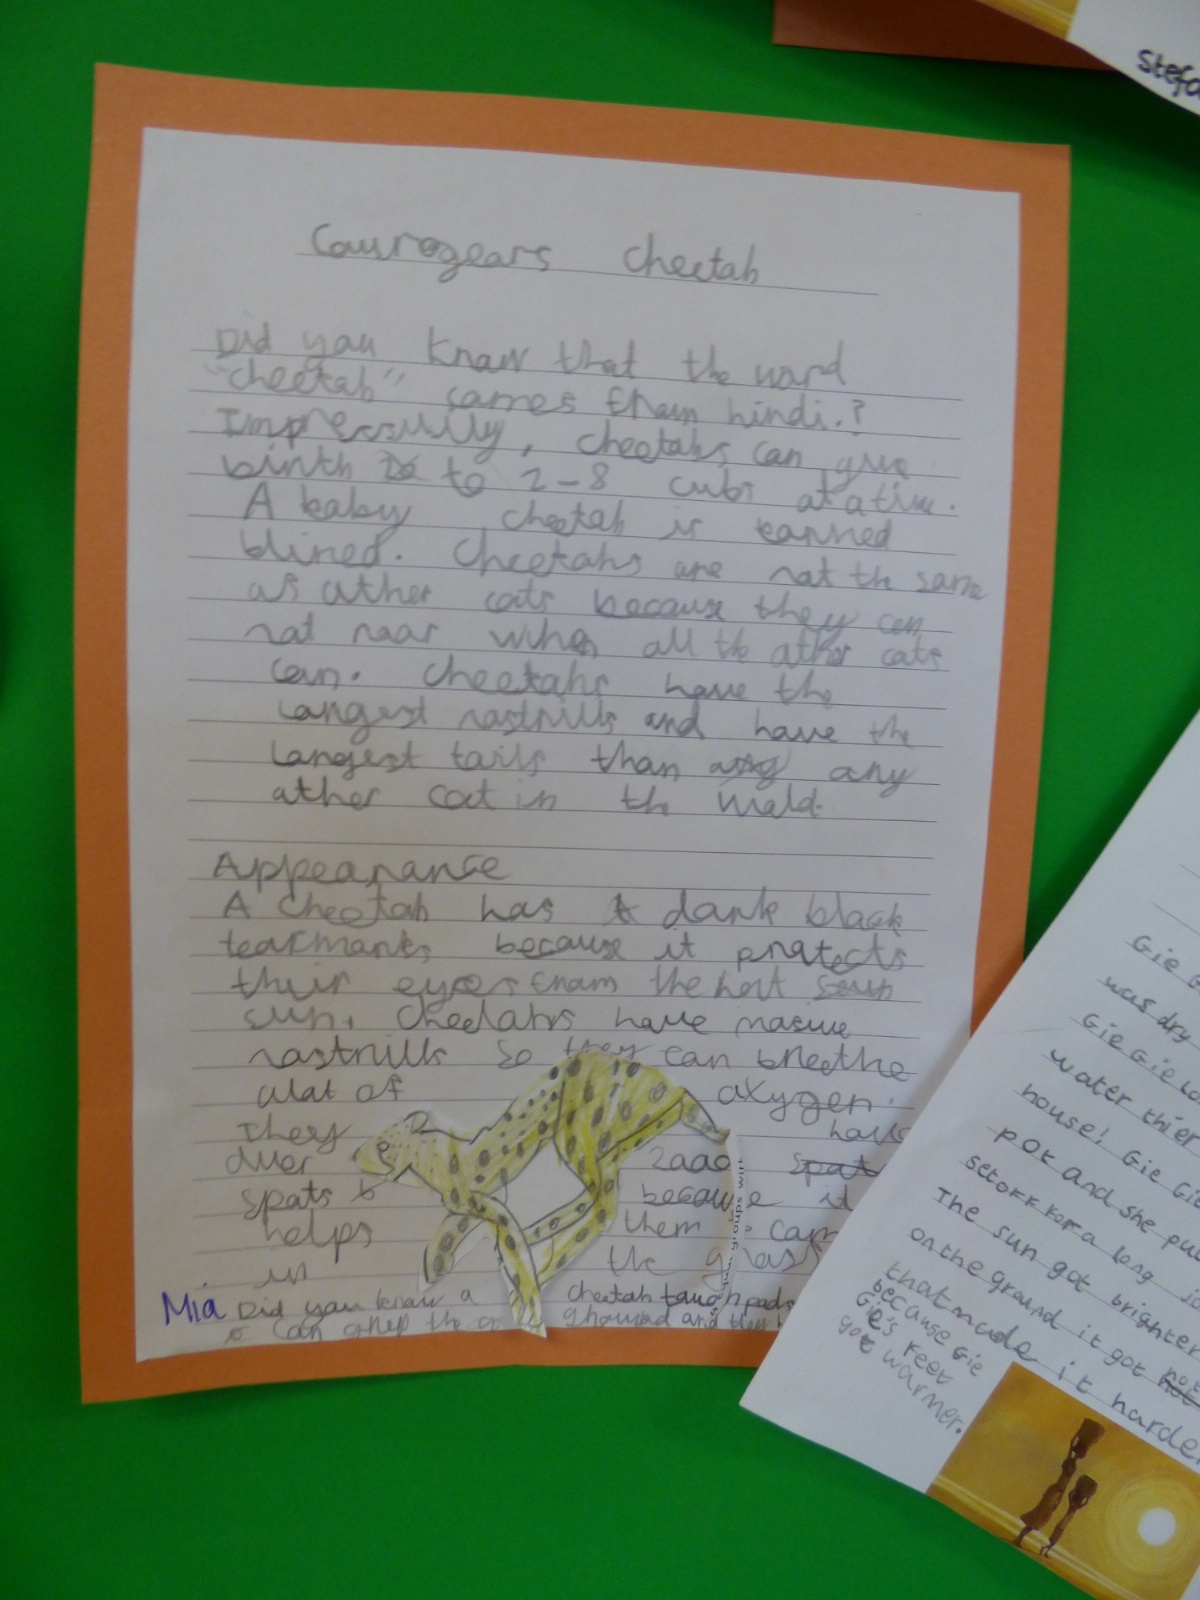 Stefa
Courogears cheetah
Did you know that the word
"cheetah" comes from hindi.?
Impressivlly, cheetahs can give
birth to 2-8 cubs at a time.
A baby cheetah is borned
blined. Cheetahs are not the same
as other cats because they can
not roar when all the other cats
can. Cheetahs have the
largest nostrills and have the
longest tails than any
other cat in the world.
Appearance
A cheetah has dark black
tearmarks because it protects
their eyes from the hort
sun. Cheetahs have masive
nostrills so they can breethe
alot of oxygen.
They have
over 2000 spot
spots because it
helps them cam
in the grass
Mia Did you know a cheetah tough pads
can grip the ghround and they
groups wi
Gie G
was dry
Gie Gie wa
water thier
house! Gie Gi
pot and she pu
set off for a long
The sun got brighter
on the ground it got hot
that made it harder
because Gie
Gie's feet
got warmer.